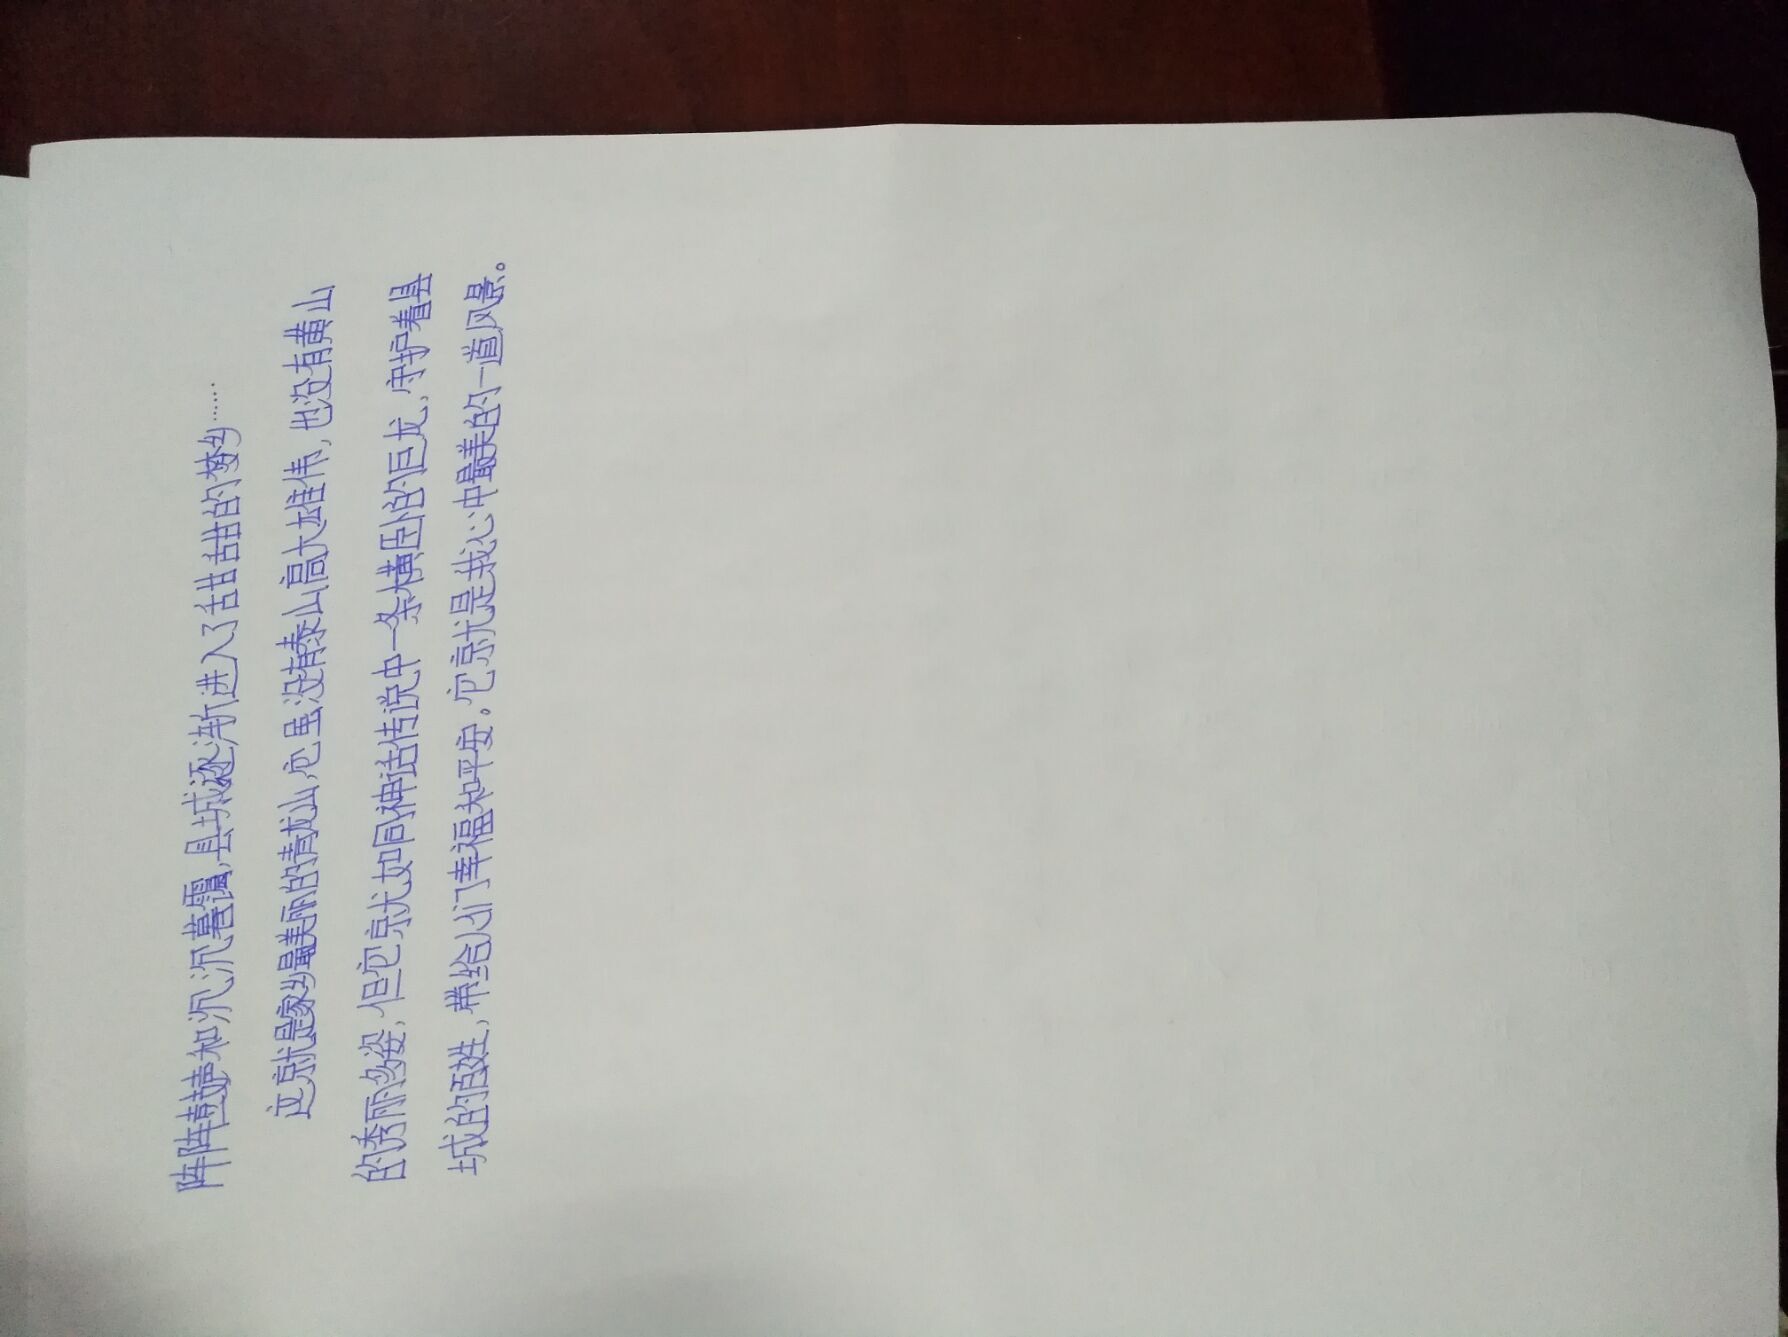 阵阵鼓声和沉沉暮霭,县城逐渐进入了甜甜的梦乡……
这就是家乡最美丽的青龙山,它虽没有泰山高大雄伟,也没有黄山
的秀丽多姿,但它就如同神话传说中一条横卧的巨龙,守护着县
城的百姓,带给人们幸福和平安。它就是我心中最美的一道风景。